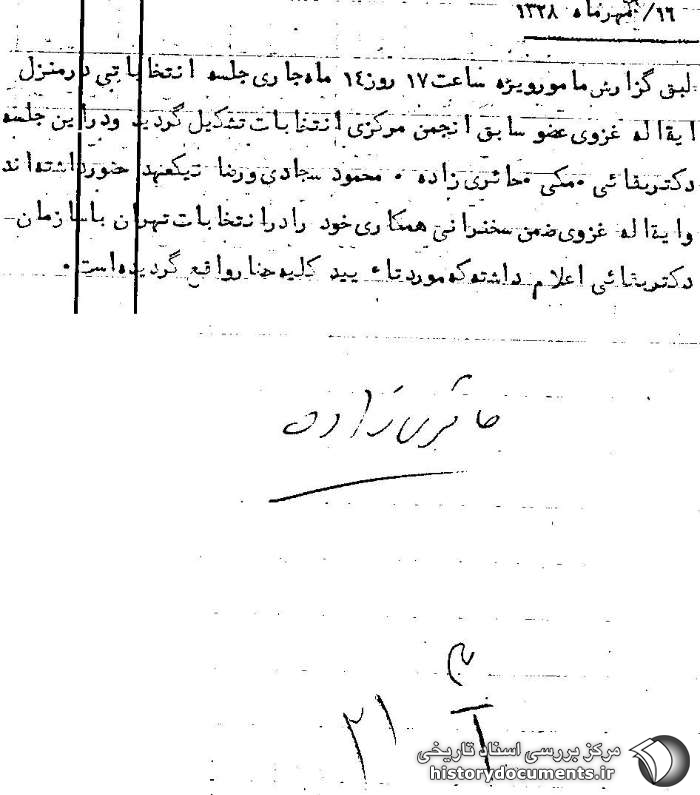 ۱۶/ مهرماه ۱۳۲۸
طبق گزارش مامورویژه ساعت ۱۷ روز ۱۴ ماه جاری جلسه انتخاباتی درمنزل
آیةاله غروی عضو سابق انجمن مرکزی انتخابات تشکیل گردید ودراین جلسه
دکتربقائی ۰ مکی ۰ حائری زاده ۰ محمود سجادی ورضا نیکعهد حضورداشته‌اند
وآیةاله غروی ضمن سخنرانی همکاری خود رادرانتخابات تهران باسازمان
دکتربقائی اعلام داشته که مورد تاء یید کلیه حضارواقع گردیده است ۰
حائری زاده
۲۱
مرکز بررسی اسناد تاریخی
historydocuments.ir